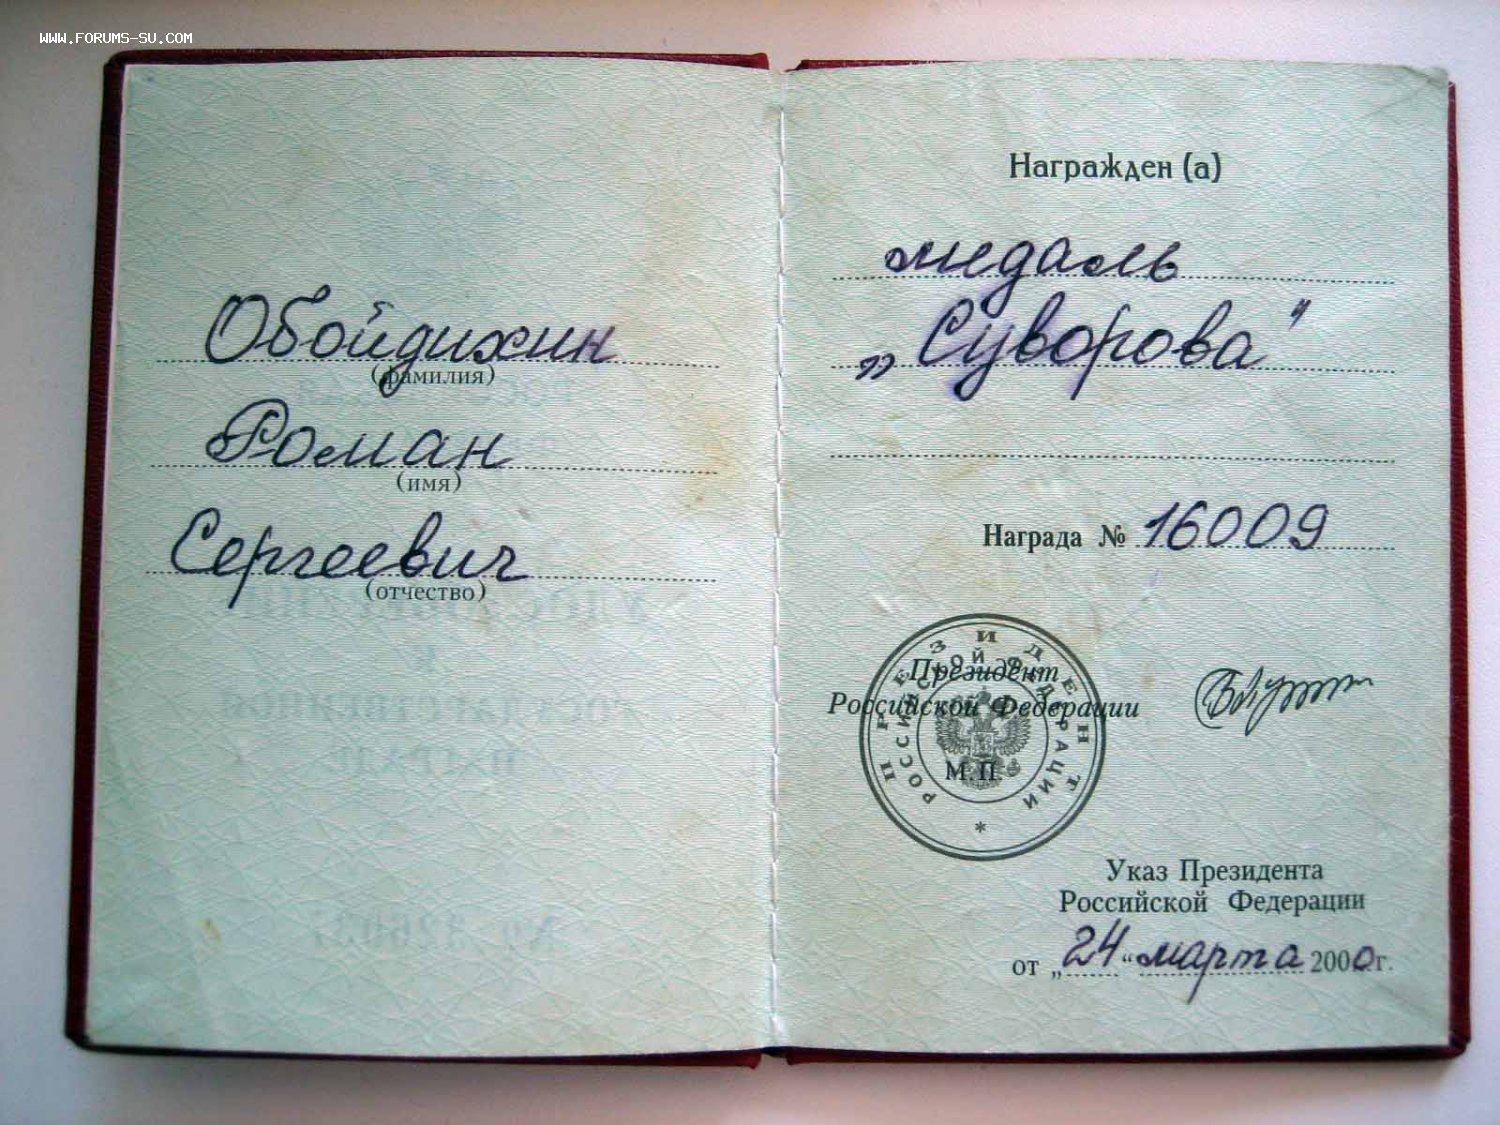 WWW.FORUMS-SU.COM
Обойдихин
(фамилия)
Роман
(имя)
Сергеевич
(отчество)
Награжден (а)
медаль
„Суворова"
Награда № 16009
ПРЕЗИДЕНТ
РОССИЙСКОЙ ФЕДЕРАЦИИ
*
Президент
Российской Федерации
М.П.
Указ Президента
Российской Федерации
от „24“ марта 2000 г.